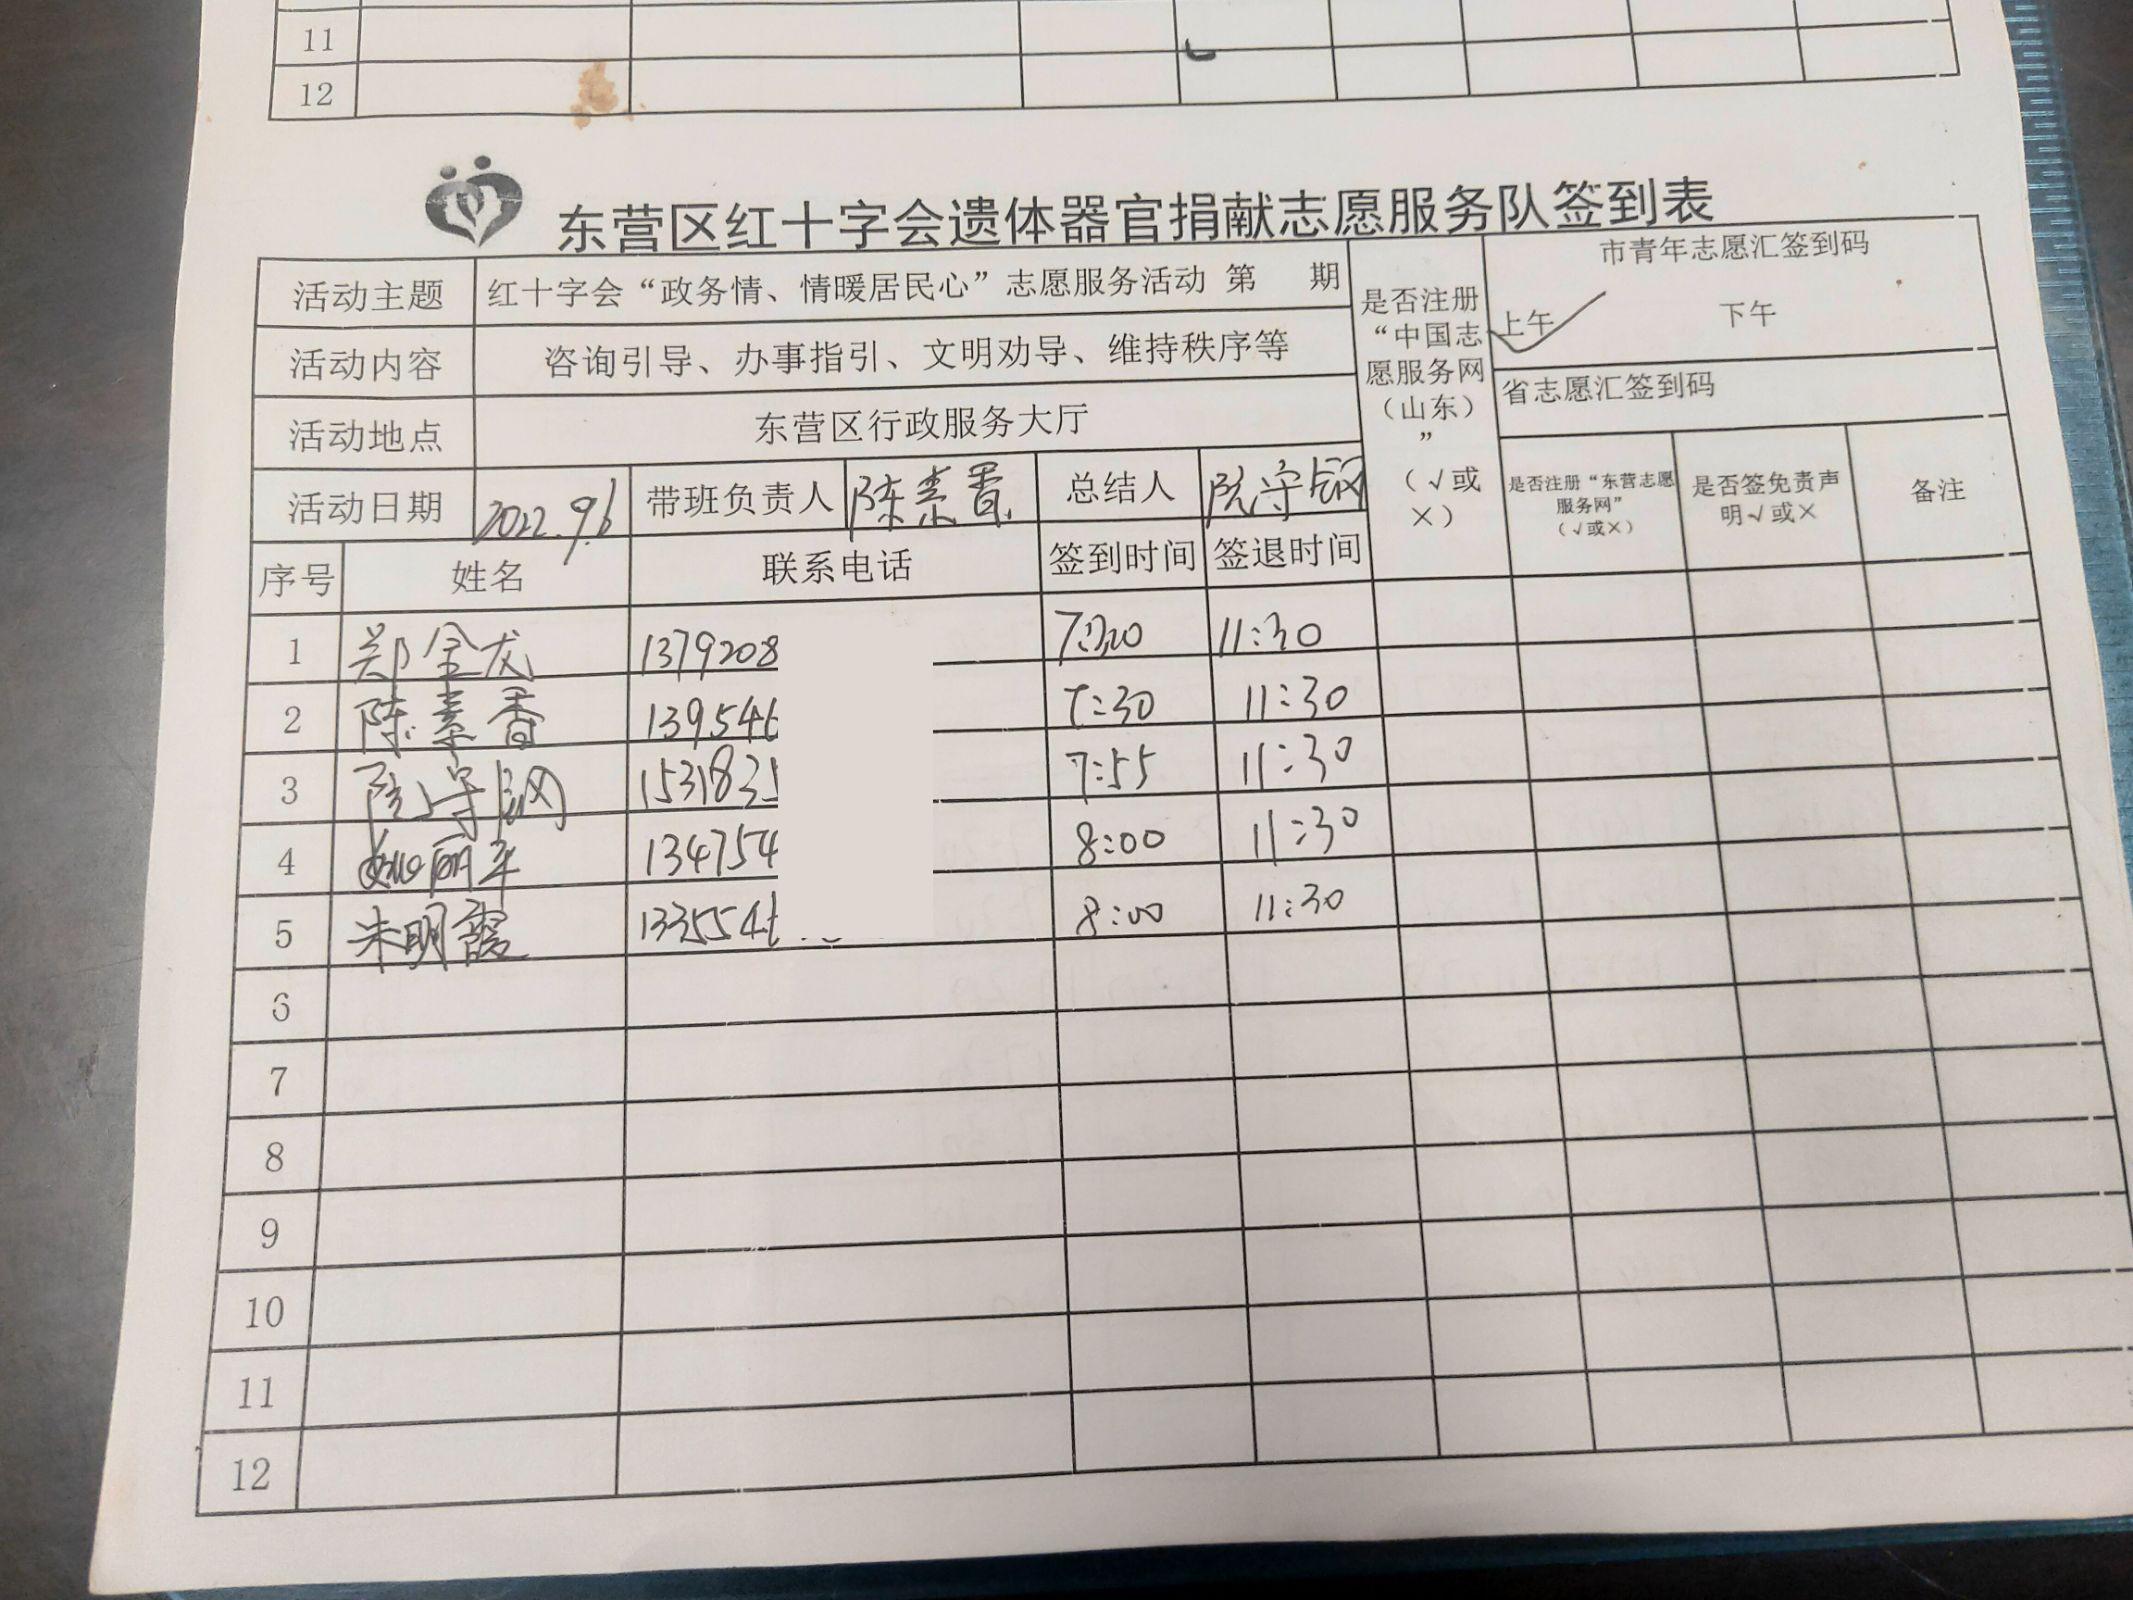 11
12
东营区红十字会遗体器官捐献志愿服务队签到表
活动主题 红十字会“政务情、情暖居民心”志愿服务活动 第 期
活动内容 咨询引导、办事指引、文明劝导、维持秩序等
活动地点 东营区行政服务大厅
活动日期 2022.9.6 带班负责人 陈素香 总结人 阮守钢
是否注册
“中国志
愿服务网
（山东）
”
（√或
×）
市青年志愿汇签到码
上午 下午
省志愿汇签到码
是否注册“东营志愿
服务网”
（√或×）
是否签免责声
明√或×
备注
序号 姓名 联系电话 签到时间 签退时间
1 郑金龙 1379208 11:30
2 陈素香 139546 7:30 11:30
3 阮守钢 1531835 7:55 11:30
4 姚丽车 134754 8:00 11:30
5 朱明霞 1335546 8:00 11:30
6
7
8
9
10
11
12